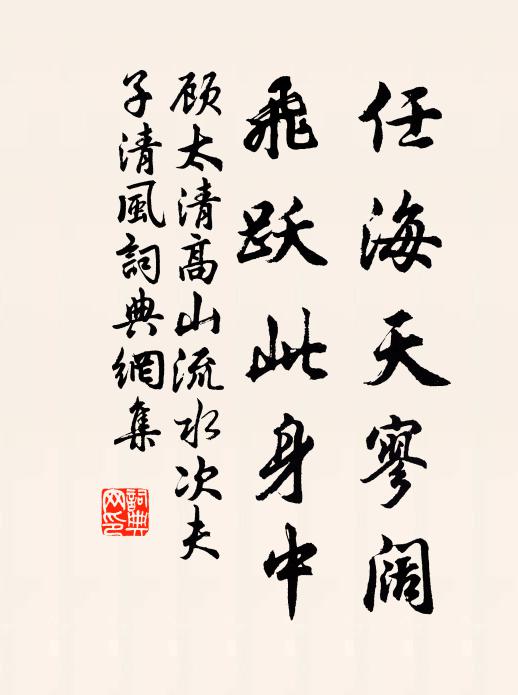 任海天寥阔
飛跃此身中
顾太清高山流水次夫
子清風詞典網集
詞典
网印